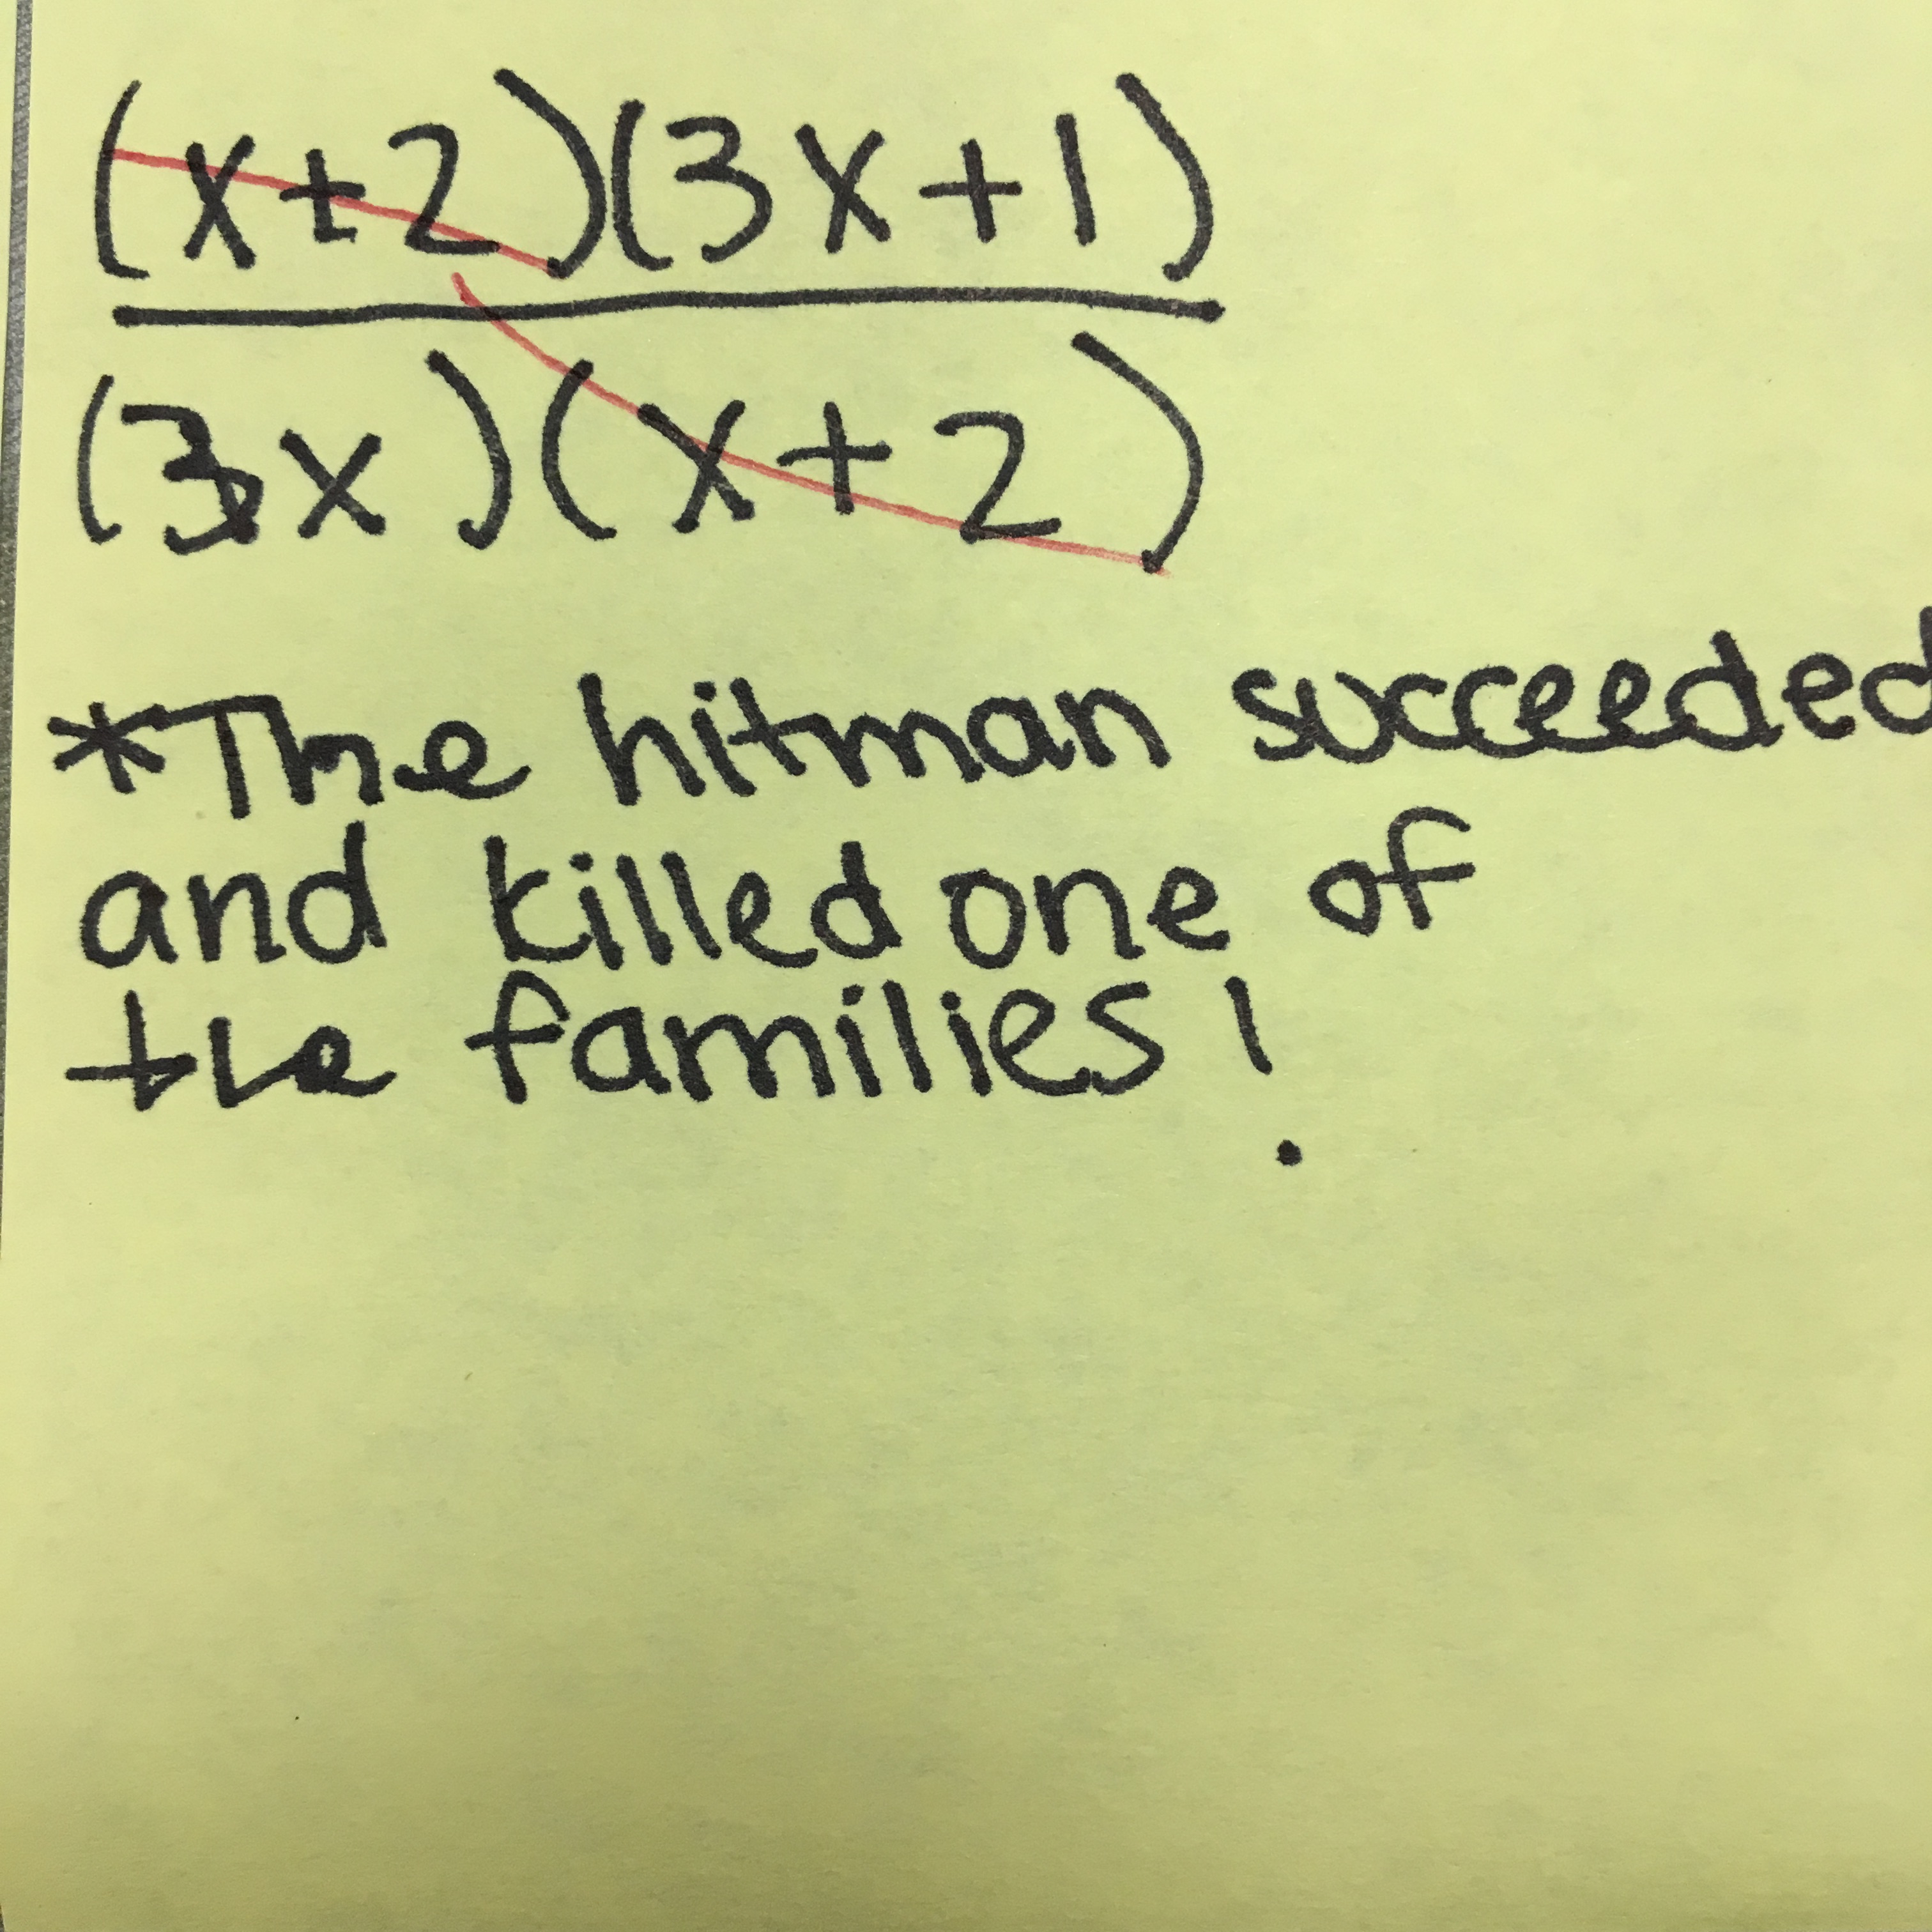 (x+2)(3x+1)
(3x)(x+2)
*The hitman succeeded
and killed one of
the families!